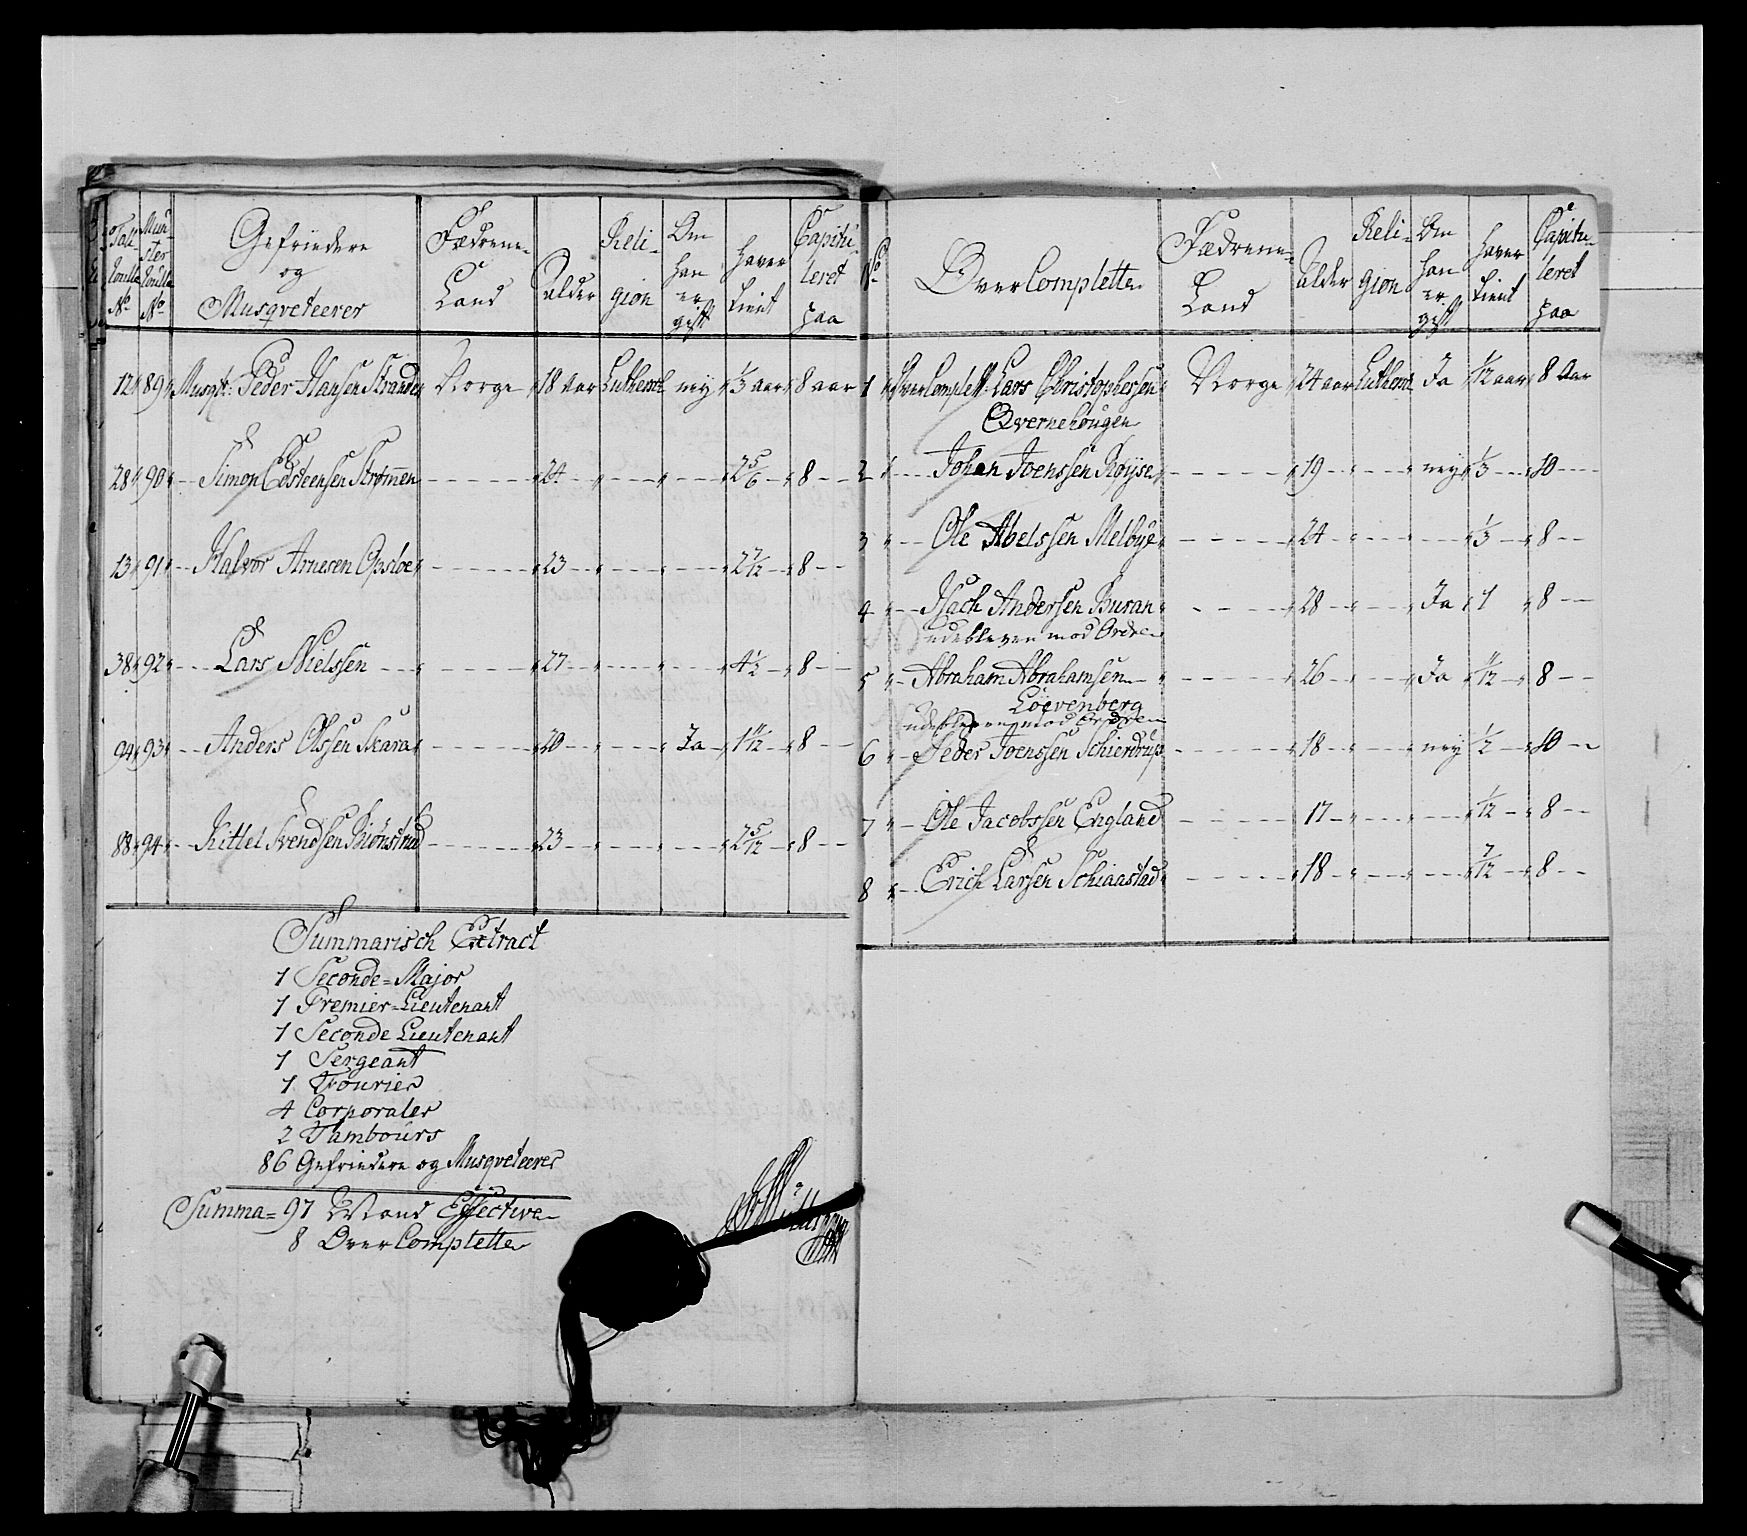 Tall Roulle No | Munster Roulle No | Gefriedere og Musqveteerer | Fædrene Land | Alder | Religion | Om han er gift | haver tient | Capituleret paa
12 89 Musqt: Peder Hansen Stranden Norge 18 Aar Luthersk ney 1/3 aar 8 aar
28 90 — Simon Edsteensen Strømen — 24 — — — 2 5/6 8 —
13 91 — Halvor Arnesen Opsloe — 23 — — — 2 7/12 8 —
38 92 — Lars Nielssen — 27 — — — 4 1/2 8 —
94 93 — Anders Olssen Skara — 20 — — Ja 1 11/12 8 —
88 94 — Kittel Svendsen Biønstad — 23 — — — 2 5/12 8 —
Summarisch Extract
1 Seconde=Major
1 Premier=Lieutenant
1 Seconde Lieutenant
1 Sergeant
1 Fourier
4 Corporaler
2 Tambours
86 Gefriedere og Musqveteerer
Summa= 97 Mand Effective
8 OverComplette
No | OverComplette | Fædrene Land | Alder | Religion | Om han er gift | haver tient | Capituleret paa
1 OverComplett Lars Christophersen Norge 24 aar Luthersk Ja 1/12 aar 8 Aar
Qvernehougen
2 — Johan Joenssen Røyse — 19 — — ney 1/3 — 10 —
3 — Ole Abelssen Melbye — 24 — — — 1/3 — 8 —
4 — Isach Andersen Buran — 28 — — Ja 1 8 —
udebleven mod Ordre
5 — Abraham Abrahamsen — 26 — — Ja 11/12 8 —
Løevenberg
udebleven mod Ordre
6 — Peder Joenssen Schierdrup — 18 — — ney 1/2 — 10 —
7 — Ole Jacobssen England — 17 — — — 1/12 — 8 —
8 — Erich Larsen Schiaastad — 18 — — — 7/12 8 —